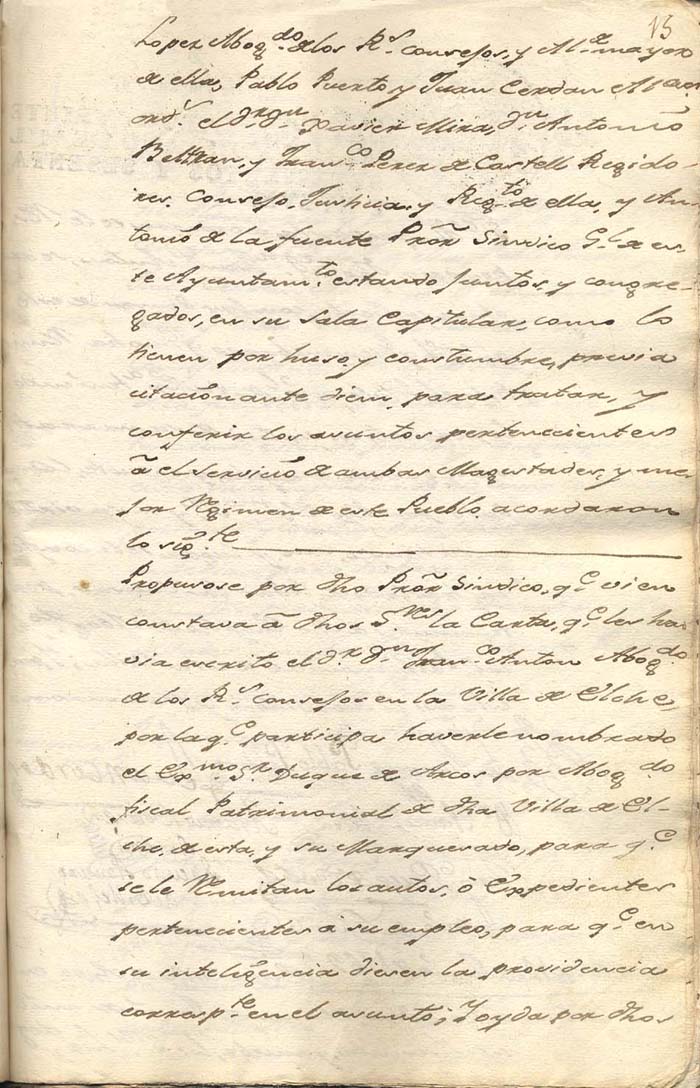 15
Lopez Abog.do de los R.s consejos, y Al.de mayor
de ella, Pablo Puerto y Juan Cerdan Alcal.s
ord.s el D.r D.n Xavier Mira, D.n Antonio
Beltran, y Fran.co Perez de Castell Regido-
res. Consejo, Justicia, y Reg.to de ella, y An-
tonio de la fuente Pro.r Sindico G.l de es-
te Ayuntam.to estando juntos, y congre-
gados, en su Sala Capitular, como lo
tienen por huso, y constumbre, previa
citacion ante diem, para tratar, y
conferir los asuntos pertenecientes
â el servicio de ambas Magestades, y me-
jor Regimen de este Pueblo acordaron
lo sig.te
Propusose por dho Pro.r Sindico, q.e vien
constava â dhos S.res la Carta, q.e les ha-
via escrito el D.r D.n Fran.co Anton Abog.do
de los R.s consejos en la Villa de Elche,
por la q.e participa haverle nombrado
el Ex.mo S.r Duque de Arcos por Abog.do
fiscal Patrimonial de dha Villa de El-
che, de esta, y su Marquesado, para q.e
se le Remitan los autos, ô Expedientes
pertenecientes â su empleo, para q.e en
su inteligencia diesen la providencia
corresp.te en el asunto; Y oyda por dhos